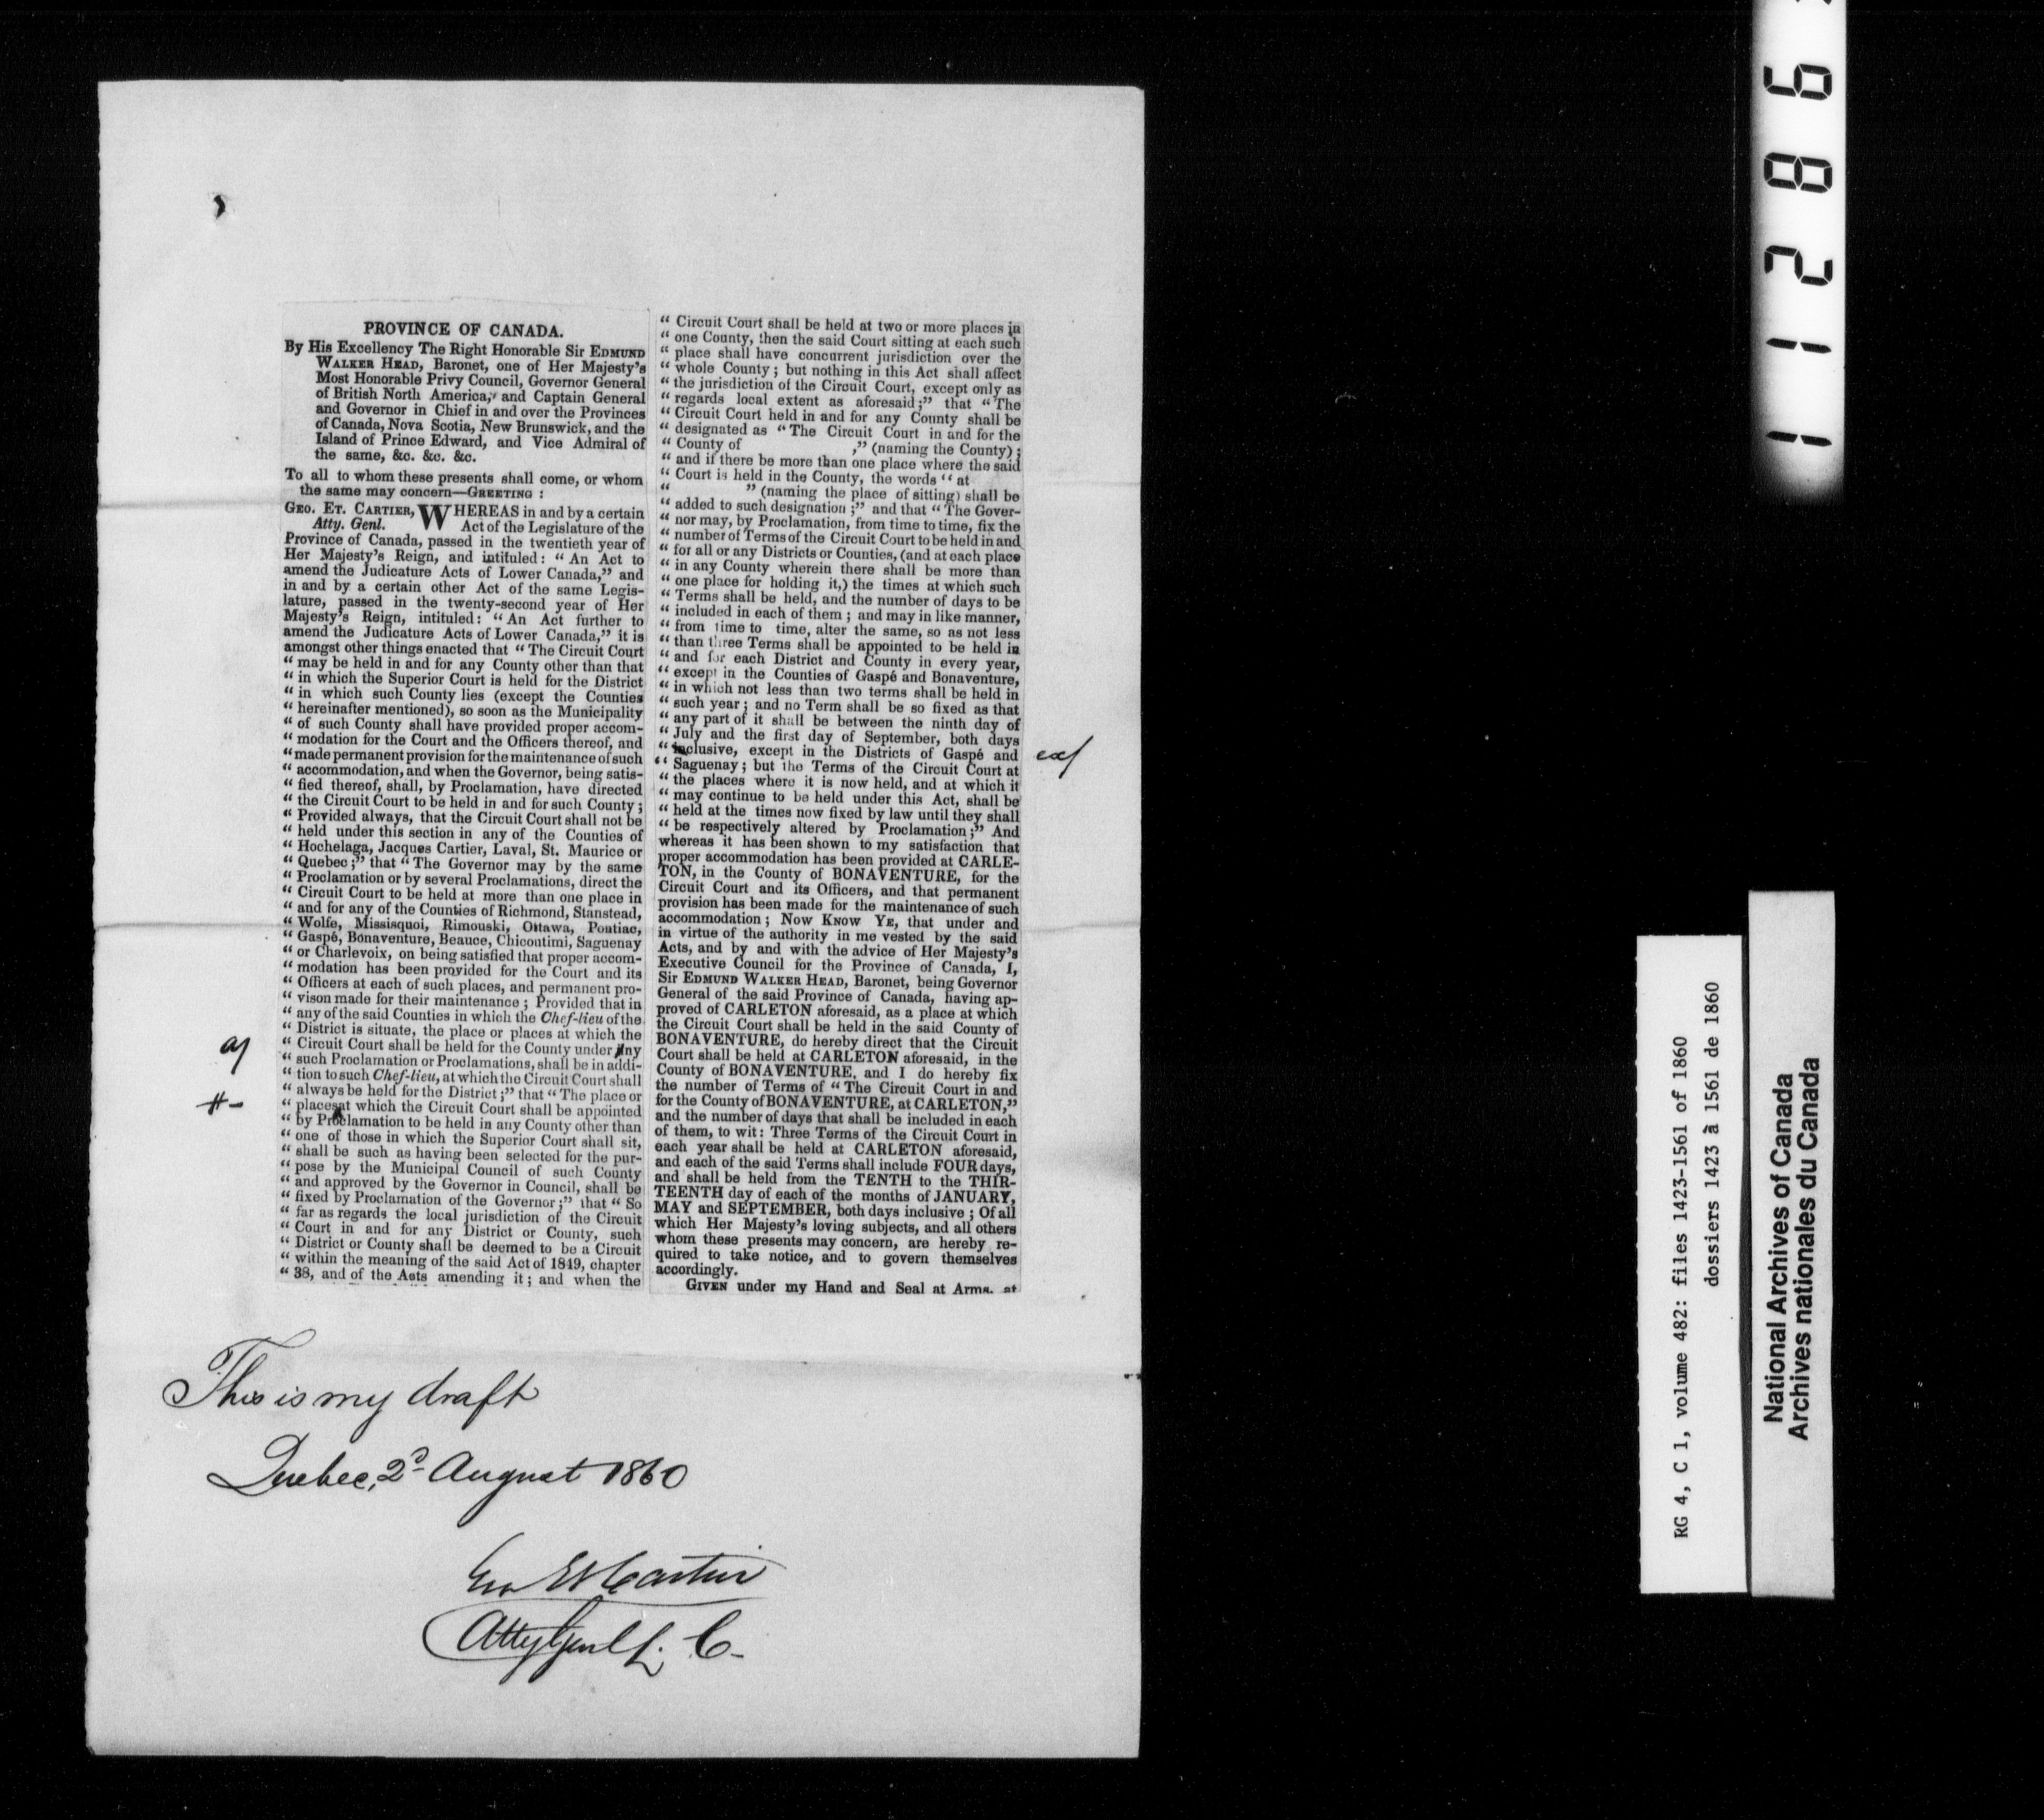 PROVINCE OF CANADA.
By His Excellency The Right Honorable Sir EDMUND
WALKER HEAD, Baronet, one of Her Majesty's
Most Honorable Privy Council, Governor General
of British North America, and Captain General
and Governor in Chief in and over the Provinces
of Canada, Nova Scotia, New Brunswick, and the
Island of Prince Edward, and Vice Admiral of
the same, &c. &c. &c.
To all to whom these presents shall come, or whom
the same may concern—GREETING :
GEO. ET. CARTIER, WHEREAS in and by a certain
Atty. Genl. Act of the Legislature of the
Province of Canada, passed in the twentieth year of
Her Majesty's Reign, and intituled: “ An Act to
amend the Judicature Acts of Lower Canada,” and
in and by a certain other Act of the same Legis-
lature, passed in the twenty-second year of Her
Majesty's Reign, intituled: “ An Act further to
amend the Judicature Acts of Lower Canada,” it is
amongst other things enacted that “ The Circuit Court
“ may be held in and for any County other than that
“ in which the Superior Court is held for the District
“ in which such County lies (except the Counties
“ hereinafter mentioned), so soon as the Municipality
“ of such County shall have provided proper accom-
“ modation for the Court and the Officers thereof, and
“ made permanent provision for the maintenance of such
“ accommodation, and when the Governor, being satis-
“ fied thereof, shall, by Proclamation, have directed
“ the Circuit Court to be held in and for such County ;
“ Provided always, that the Circuit Court shall not be
“ held under this section in any of the Counties of
“ Hochelaga, Jacques Cartier, Laval, St. Maurice or
“ Quebec ;” that “ The Governor may by the same
“ Proclamation or by several Proclamations, direct the
“ Circuit Court to be held at more than one place in
“ and for any of the Counties of Richmond, Stanstead,
“ Wolfe, Missisquoi, Rimouski, Ottawa, Pontiac,
“ Gaspé, Bonaventure, Beauce, Chicoutimi, Saguenay
“ or Charlevoix, on being satisfied that proper accom-
“ modation has been provided for the Court and its
“ Officers at each of such places, and permanent pro-
“ vison made for their maintenance ; Provided that in
“ any of the said Counties in which the Chef-lieu of the
“ District is situate, the place or places at which the
a/ “ Circuit Court shall be held for the County under any
“ such Proclamation or Proclamations, shall be in addi-
“ tion to such Chef-lieu, at which the Circuit Court shall
“ always be held for the District ;” that “ The place or
# - “ places at which the Circuit Court shall be appointed
“ by Proclamation to be held in any County other than
“ one of those in which the Superior Court shall sit,
“ shall be such as having been selected for the pur-
“ pose by the Municipal Council of such County
“ and approved by the Governor in Council, shall be
“ fixed by Proclamation of the Governor ;” that “ So
“ far as regards the local jurisdiction of the Circuit
“ Court in and for any District or County, such
“ District or County shall be deemed to be a Circuit
“ within the meaning of the said Act of 1849, chapter
“ 38, and of the Acts amending it ; and when the
“ Circuit Court shall be held at two or more places in
“ one County, then the said Court sitting at each such
“ place shall have concurrent jurisdiction over the
“ whole County ; but nothing in this Act shall affect
“ the jurisdiction of the Circuit Court, except only as
“ regards local extent as aforesaid ;” that “ The
“ Circuit Court held in and for any County shall be
“ designated as “ The Circuit Court in and for the
“ County of ,” (naming the County) ;
“ and if there be more than one place where the said
“ Court is held in the County, the words “ at
“ ” (naming the place of sitting) shall be
“ added to such designation ;” and that “ The Gover-
“ nor may, by Proclamation, from time to time, fix the
“ number of Terms of the Circuit Court to be held in and
“ for all or any Districts or Counties, (and at each place
“ in any County wherein there shall be more than
“ one place for holding it,) the times at which such
“ Terms shall be held, and the number of days to be
“ included in each of them ; and may in like manner,
“ from time to time, alter the same, so as not less
“ than three Terms shall be appointed to be held in
“ and for each District and County in every year,
“ except in the Counties of Gaspé and Bonaventure,
“ in which not less than two terms shall be held in
“ such year ; and no Term shall be so fixed as that
“ any part of it shall be between the ninth day of
“ July and the first day of September, both days
“ inclusive, except in the Districts of Gaspé and
“ Saguenay ; but the Terms of the Circuit Court at
“ the places where it is now held, and at which it
“ may continue to be held under this Act, shall be
“ held at the times now fixed by law until they shall
“ be respectively altered by Proclamation ;” And
whereas it has been shown to my satisfaction that
proper accommodation has been provided at CARLE-
TON, in the County of BONAVENTURE, for the
Circuit Court and its Officers, and that permanent
provision has been made for the maintenance of such
accommodation ; NOW KNOW YE, that under and
in virtue of the authority in me vested by the said
Acts, and by and with the advice of Her Majesty's
Executive Council for the Province of Canada, I,
Sir EDMUND WALKER HEAD, Baronet, being Governor
General of the said Province of Canada, having ap-
proved of CARLETON aforesaid, as a place at which
the Circuit Court shall be held in the said County of
BONAVENTURE, do hereby direct that the Circuit
Court shall be held at CARLETON aforesaid, in the
County of BONAVENTURE, and I do hereby fix
the number of Terms of “ The Circuit Court in and
for the County of BONAVENTURE, at CARLETON,”
and the number of days that shall be included in each
of them, to wit: Three Terms of the Circuit Court in
each year shall be held at CARLETON aforesaid,
and each of the said Terms shall include FOUR days,
and shall be held from the TENTH to the THIR-
TEENTH day of each of the months of JANUARY,
MAY and SEPTEMBER, both days inclusive ; Of all
which Her Majesty's loving subjects, and all others
whom these presents may concern, are hereby re-
quired to take notice, and to govern themselves
accordingly.
GIVEN under my Hand and Seal at Arms, at
This is my draft
Quebec, 2d August 1860
Geo Et Cartier
Atty Genl L. C.
11286
RG 4, C 1, volume 482: files 1423-1561 of 1860
dossiers 1423 à 1561 de 1860
National Archives of Canada
Archives nationales du Canada